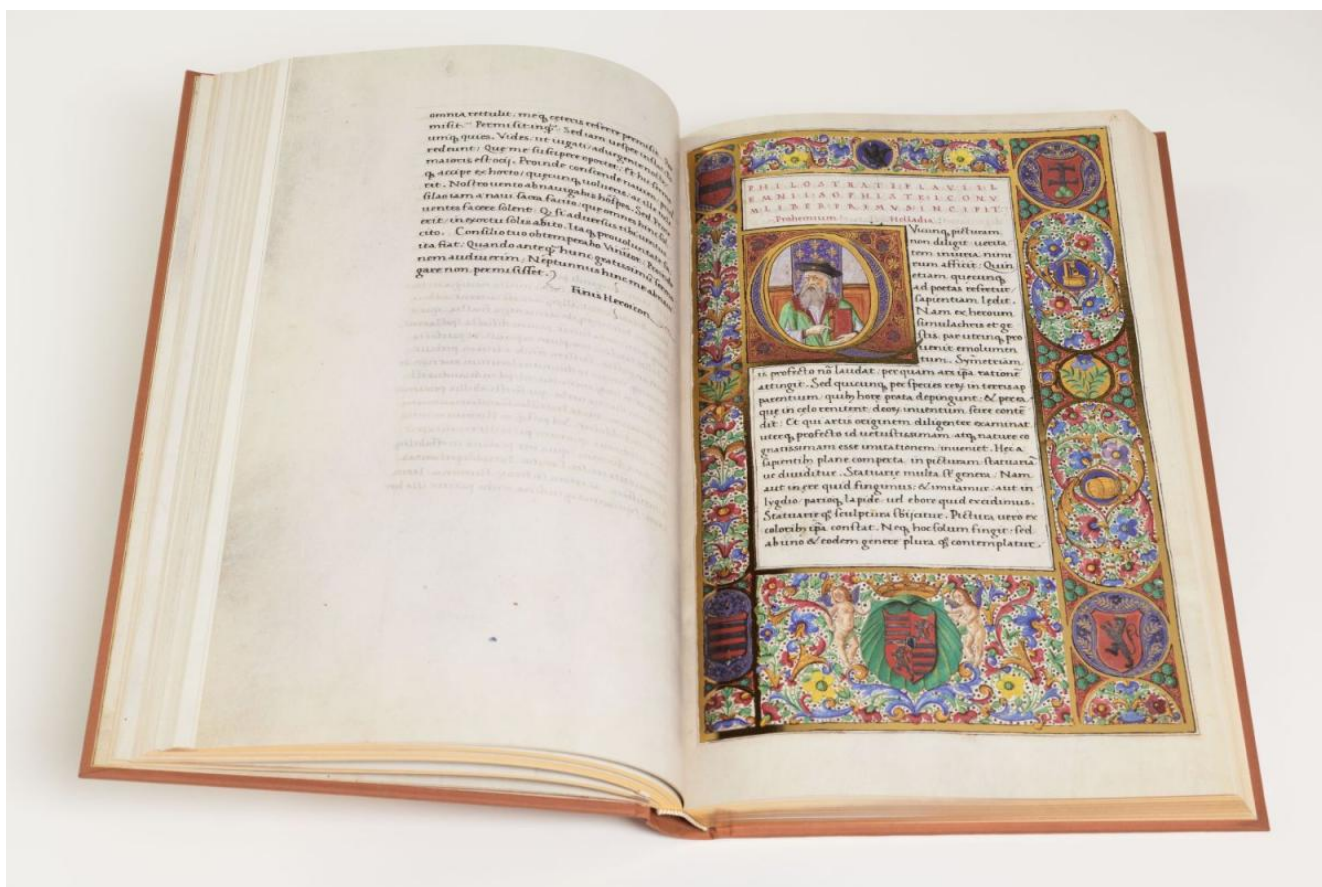 omnia rettulit: me q, ceteris referre permisit
misit. Permisit inq̃. Sed iam uesper
umq, quies. Vides, ut uigati adurgente nocte
redeunt: Que me suscipere oportet: Et
maioris est ocij. Proinde conscende nauem,
q, accipe ex horto, quecunq, uolueris
rit. Nostro uento ab nauigabis hospes. Sed
silaq, iam a naui facta fauito, que omnes hunc
uentes facere solent. Q, si aduersus tibi uentus
erit, in exortu solis abito. Itaq, pro uoluntate
cito. Consilio tuo obtemperabo Vinitor:
ita fiat: Quando ante q̃ hunc gratissimũ
nem audiuerim, Neptunnus hinc me
gare non permisisset.
Finis Heroicon
PHILOSTRATI FLAVII L
EMNII SOPHISTE ICONV
M LIBER PRIMVS INCIPIT
Prohemium. Helladia
Vicunq, picturam
non diligit uerita
tem iniuria nimi
rum afficit: Quin
etiam quecunq,
ad poetas refertur
sapientiam ledit.
Nam ex heroum
simulachris et ge
stis par utrinq, pro
uenit emolumen
tum. Symetriam
is profecto nõ laudat, per quam ars ip̃a rationẽ
attingit. Sed quicunq, per species rerũ in terris ap
parentium, quib, hore prata depingunt, & per ea
que in celo renitent, deorũ inuentum scire contẽ
dit: Et qui artis originem diligenter examinat
uterq, profecto id uetustissimam, atq, nature co
gnatissimam esse imitationem, inueniet. Hec a
sapientib, plane comperta, in picturam, statuariã
ue diuiditur. Statuarie multa sũt genera. Nam
aut in ere quid fingimus, & imitamur, aut in
lygdio, parioq, lapide, uel ebore quid excidimus.
Statuarie q̃ sculptura sbijcitur. Pictura uero ex
colorib, ip̃a constat. Neq, hoc solum fingit, sed
ab uno & eodem genere plura q̃ contemplatur.